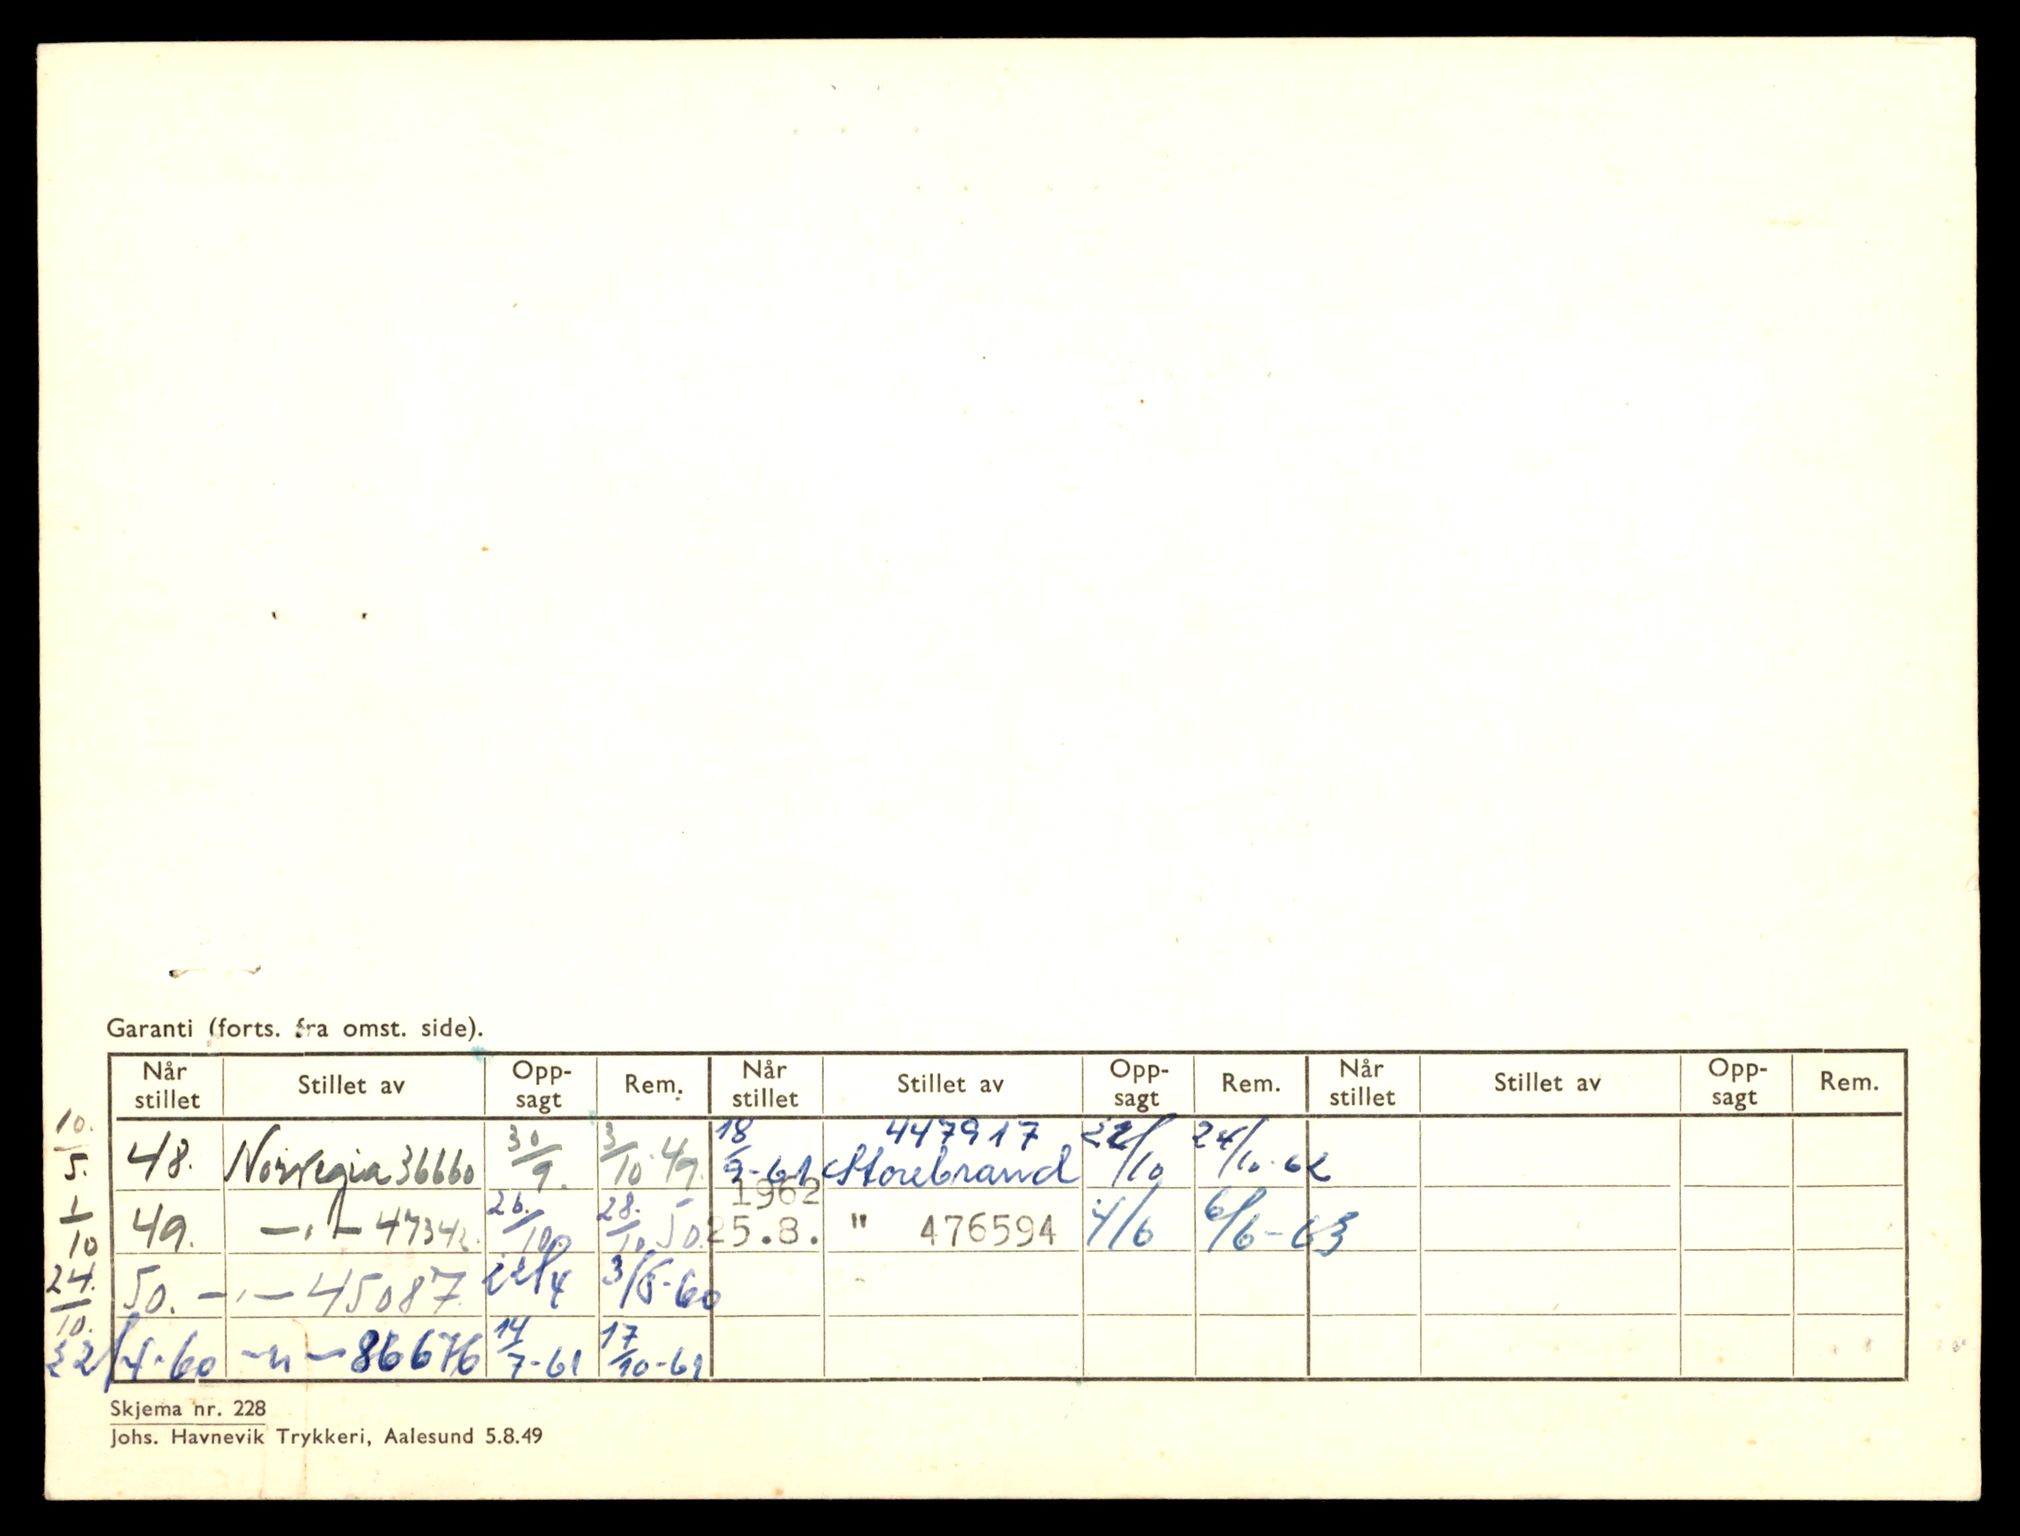 Garanti (forts. fra omst. side).
Når stillet Stillet av Opp-sagt Rem. Når stillet Stillet av Opp-sagt Rem. Når stillet Stillet av Opp-sagt Rem.
10./5. 48. Norvegia 36660 30/9. 3/10. 49. 18/9-61 447917 Storebrand 22/10 24/10-62
1/10 49. —"— 47342. 26./10 28./10 50. 1962 25.8. " 476594 4/6 6/6-63
24./10. 50. —"— 45087. 22/4 3/5-60
22/4-60 —"— 86676 14/7-61 17/10-61
Skjema nr. 228
Johs. Havnevik Trykkeri, Aalesund 5.8.49